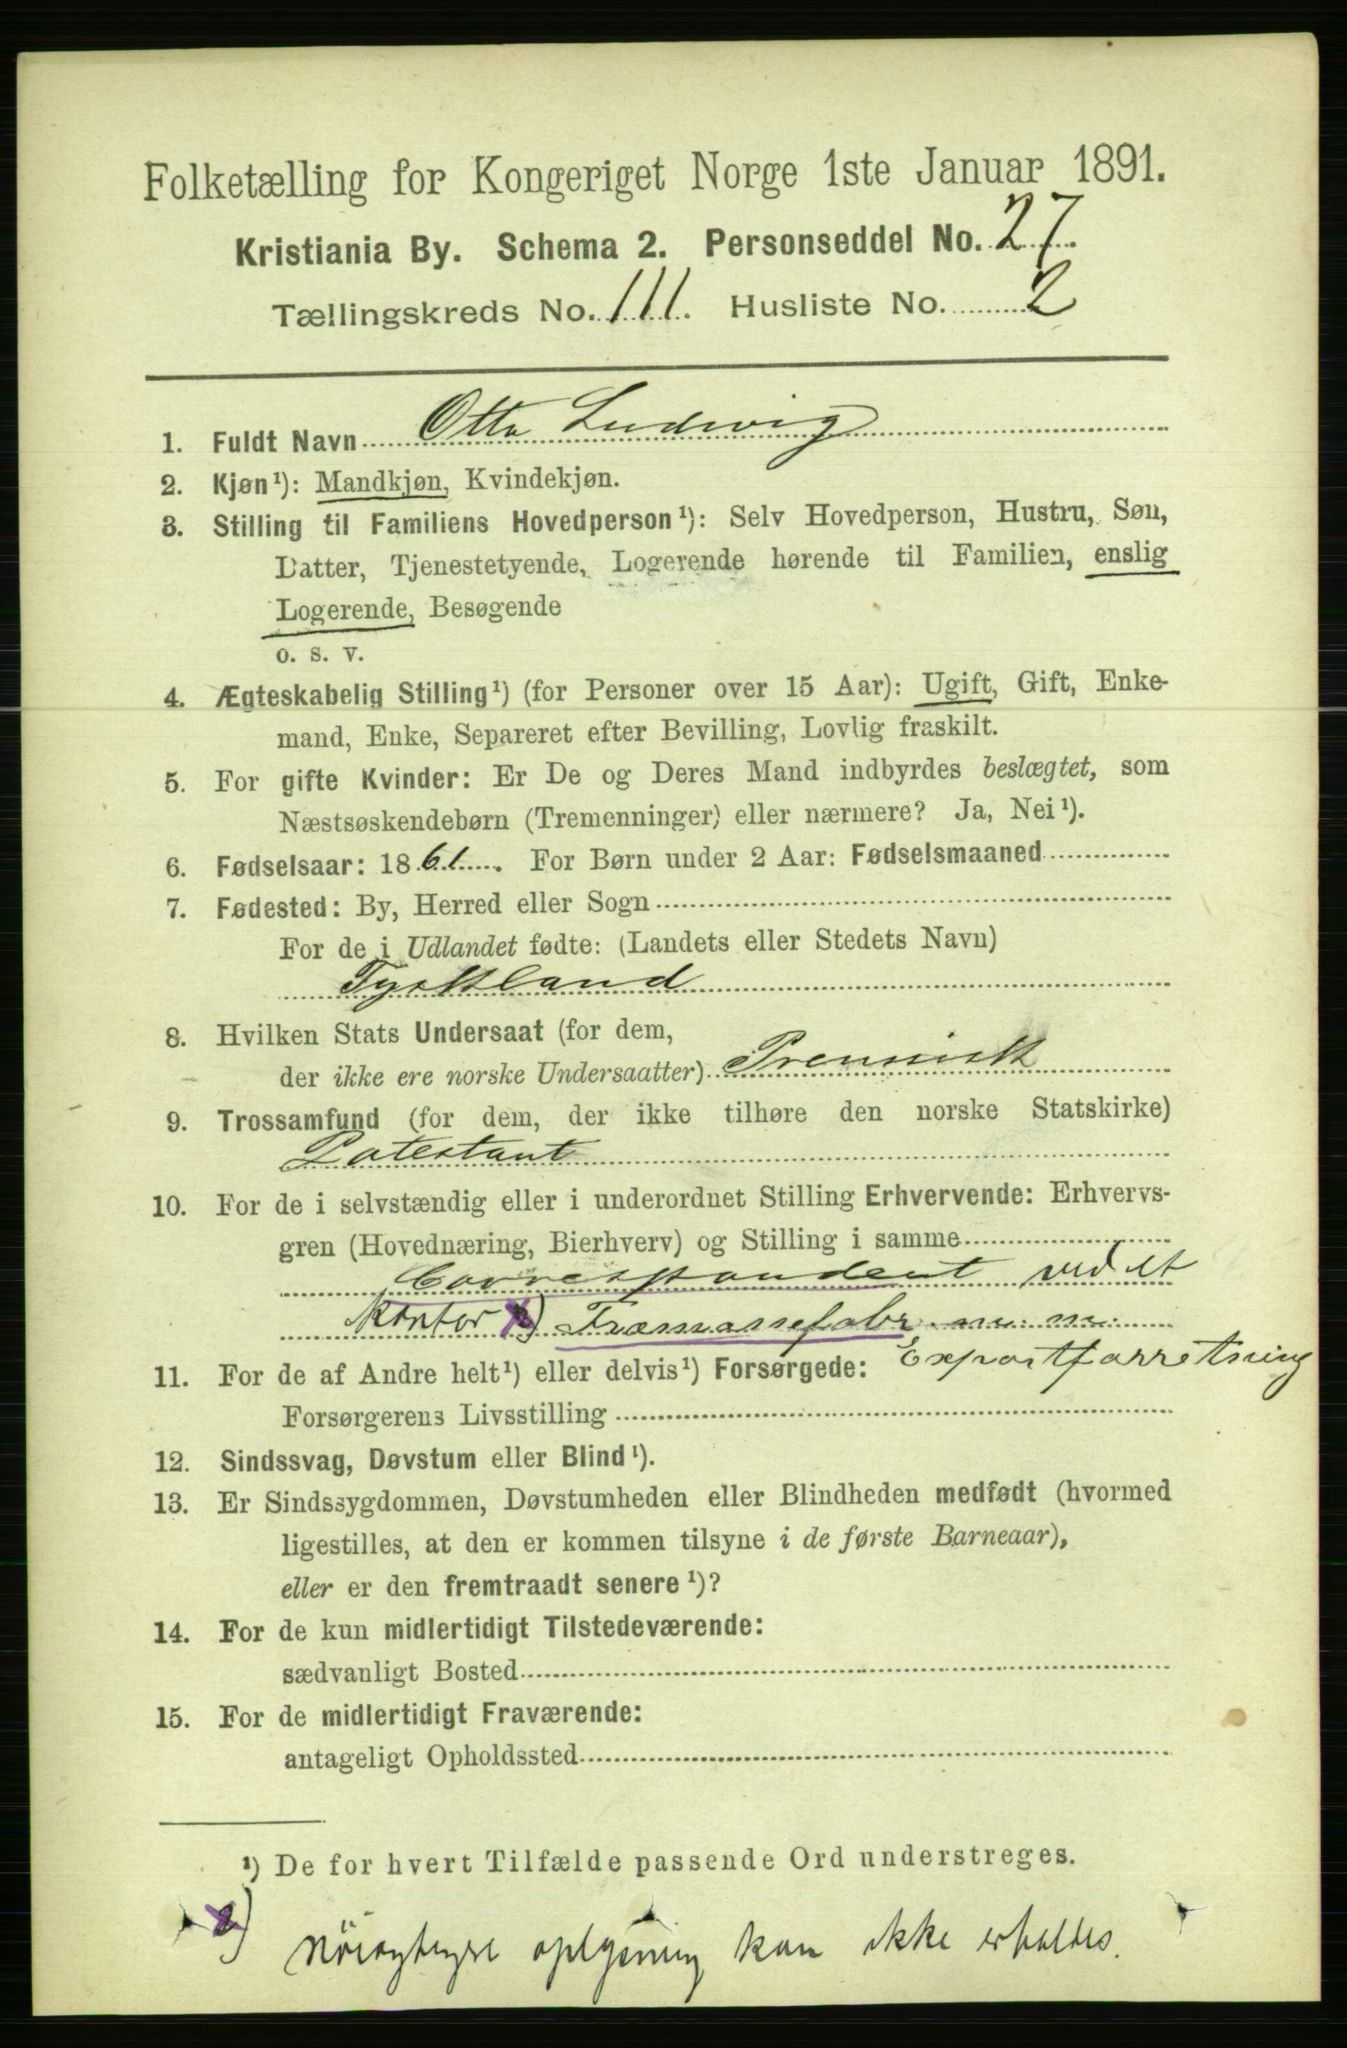 Folketælling for Kongeriget Norge 1ste Januar 1891.
Kristiania By. Schema 2. Personseddel No. 27.
Tællingskreds No. 111. Husliste No. 2
1. Fuldt Navn Otto Ludwig
2. Kjøn¹): Mandkjøn, Kvindekjøn.
3. Stilling til Familiens Hovedperson¹): Selv Hovedperson, Hustru, Søn,
Datter, Tjenestetyende, Logerende hørende til Familien, enslig
Logerende, Besøgende
o. s. v.
4. Ægteskabelig Stilling¹) (for Personer over 15 Aar): Ugift, Gift, Enke-
mand, Enke, Separeret efter Bevilling, Lovlig fraskilt.
5. For gifte Kvinder: Er De og Deres Mand indbyrdes beslægtet, som
Næstsøskendebørn (Tremenninger) eller nærmere? Ja, Nei¹).
6. Fødselsaar: 1861. For Børn under 2 Aar: Fødselsmaaned
7. Fødested: By, Herred eller Sogn
For de i Udlandet fødte: (Landets eller Stedets Navn)
Tyskland
8. Hvilken Stats Undersaat (for dem,
der ikke ere norske Undersaatter) Preussisk
9. Trossamfund (for dem, der ikke tilhøre den norske Statskirke)
Protestant
10. For de i selvstændig eller i underordnet Stilling Erhvervende: Erhvervs-
gren (Hovednæring, Bierhverv) og Stilling i samme
Correspondent ved et
kontor x) Træmassefabr. m. m.
Exportforretning
11. For de af Andre helt¹) eller delvis¹) Forsørgede:
Forsørgerens Livsstilling
12. Sindssvag, Døvstum eller Blind¹).
13. Er Sindssygdommen, Døvstumheden eller Blindheden medfødt (hvormed
ligestilles, at den er kommen tilsyne i de første Barneaar),
eller er den fremtraadt senere¹)?
14. For de kun midlertidigt Tilstedeværende:
sædvanligt Bosted
15. For de midlertidigt Fraværende:
antageligt Opholdssted
¹) De for hvert Tilfælde passende Ord understreges.
x) nöiagtigere oplysning kan ikke erholdes.